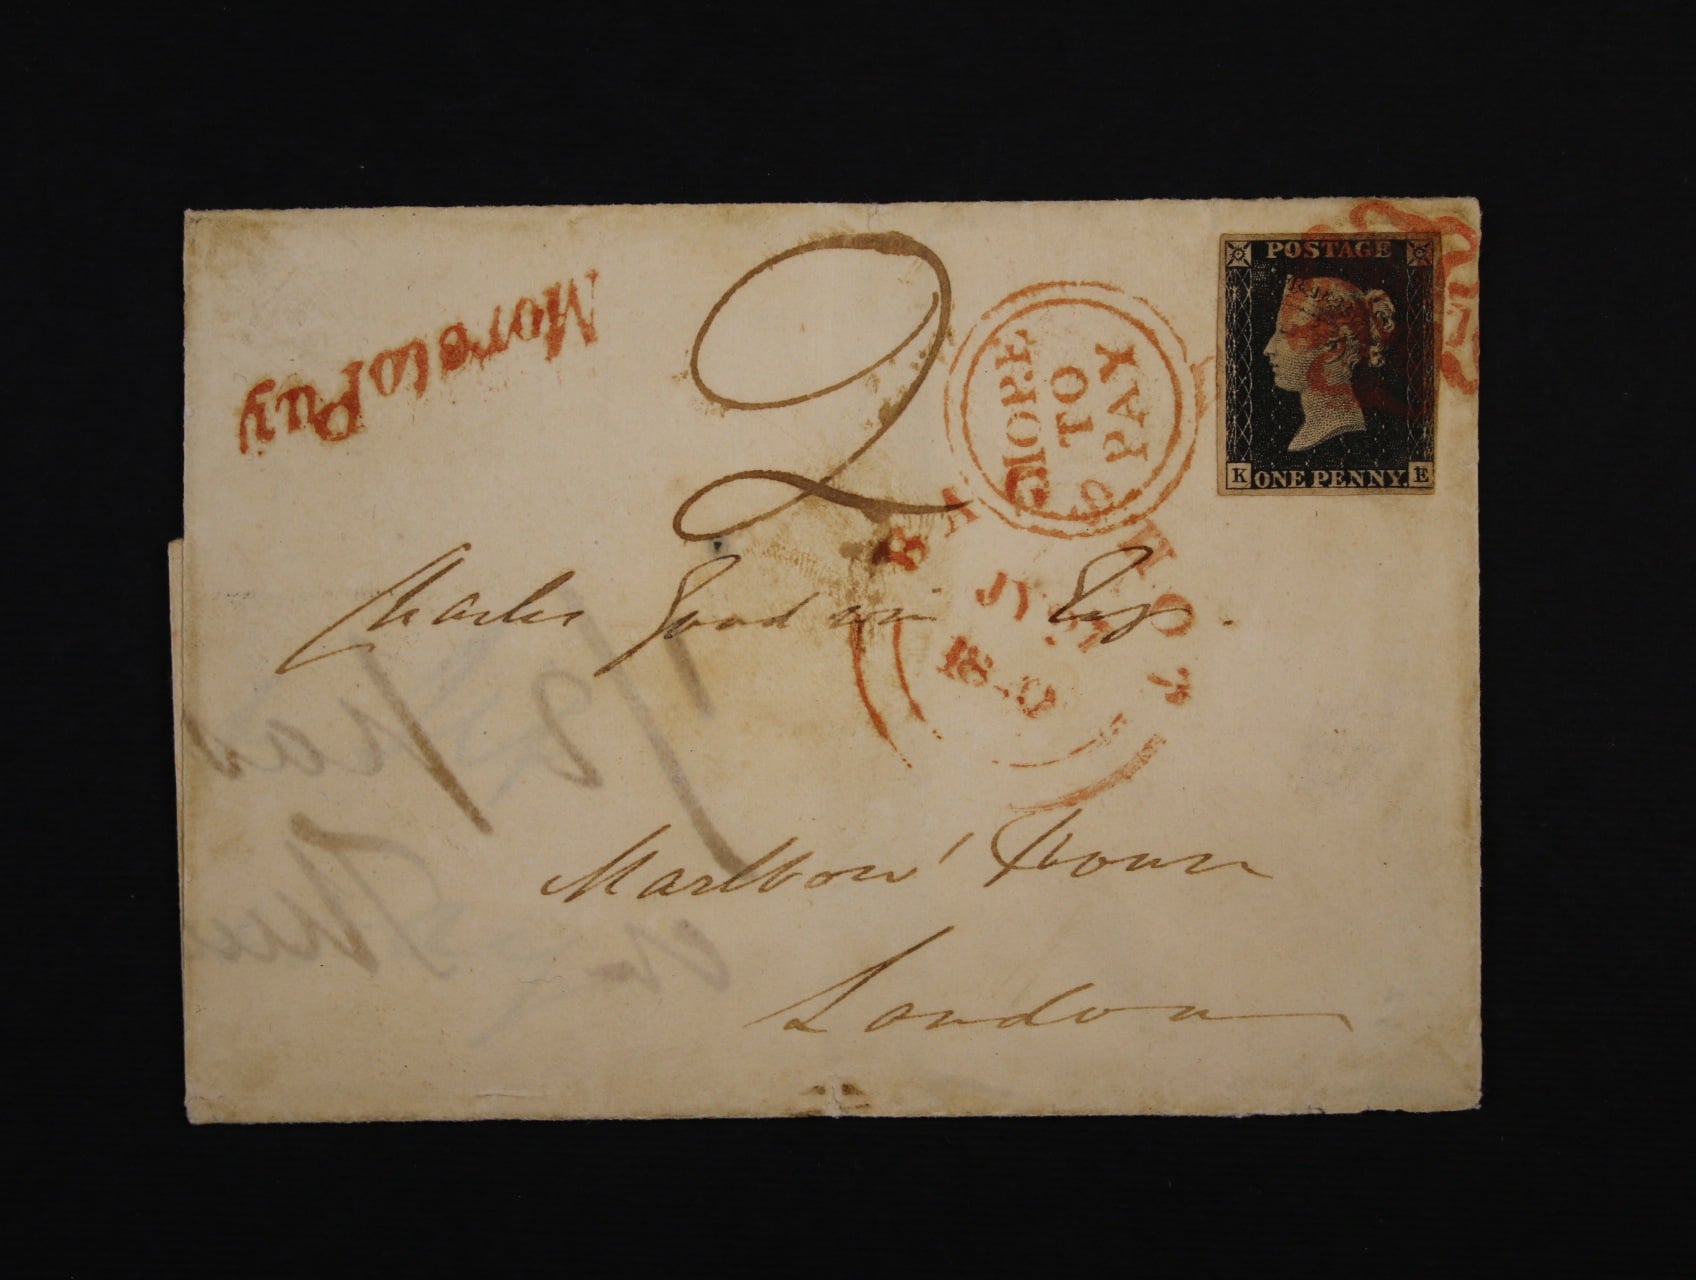 POSTAGE
K ONE PENNY. E
More to Pay
2
MORE
TO
PAY
BAGSHOT
JY 27
1840
Charles Goodwin Esq.
Marlboro' House
London